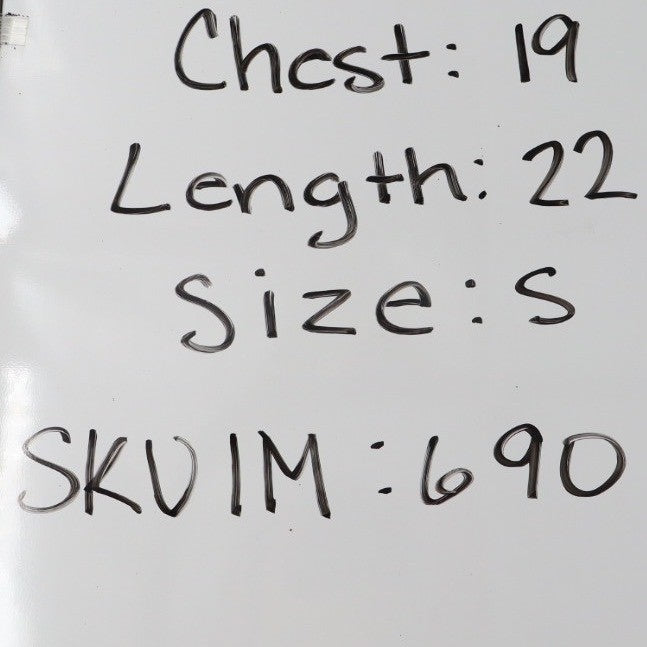 Chest: 19
Length: 22
Size: S
SKU IM: 690